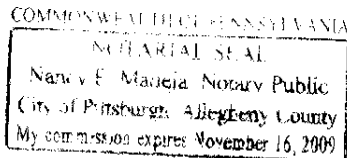 COMMONWEALTH OF PENNSYLVANIA
NOTARIAL SEAL
Nancy E. Notary Public
City of Pittsburgh Allegheny County
My commission expires November 16, 2009